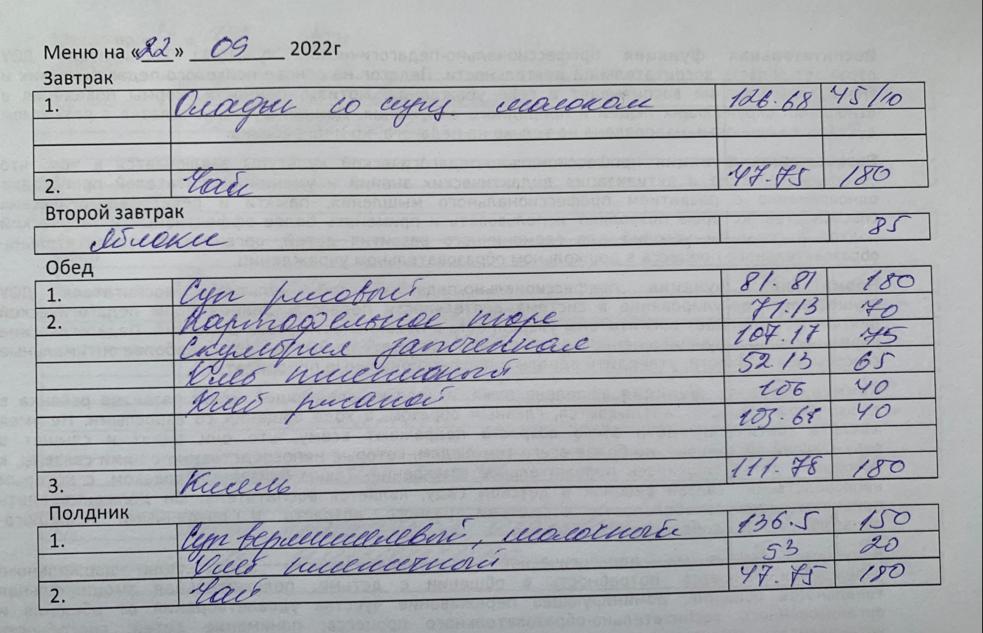 Меню на «22» 09 2022г
Завтрак
1. Оладьи со сгущ молоком 126.68 45/10
2. Чай 47.75 180
Второй завтрак
Яблоки 85
Обед
1. Суп рисовый 81.81 180
2. Картофельное пюре 71.13 70
Скумбрия запеченная 107.17 75
Хлеб пшеничный 52.13 65
Хлеб ржаной 106 40
103.68 40
3. Кисель 111.78 180
Полдник
1. Суп вермишелевый, молочный 136.5 150
Хлеб пшеничный 53 20
2. Чай 47.75 180